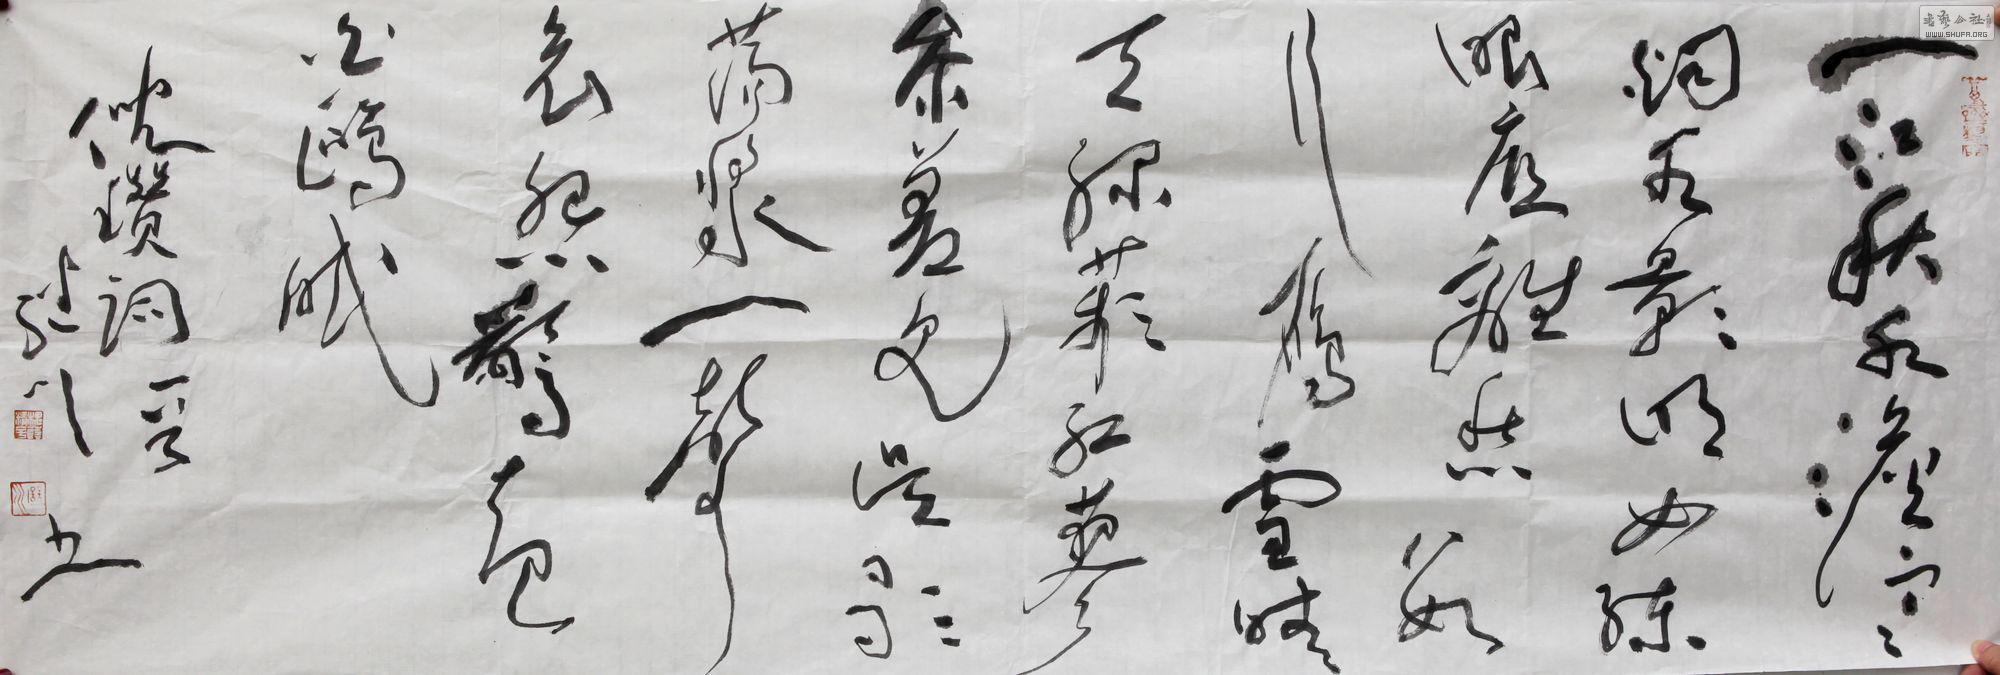 書艺公社
WWW.SHUFA.ORG
一江秋水澹寒
烟水影明如練
眼底離愁数
行雁雪晴
天绿苹红蓼
参差见吴歌
荡桨一聲
哀怨驚起
白鸥眠
倪瓒词一首
继川书